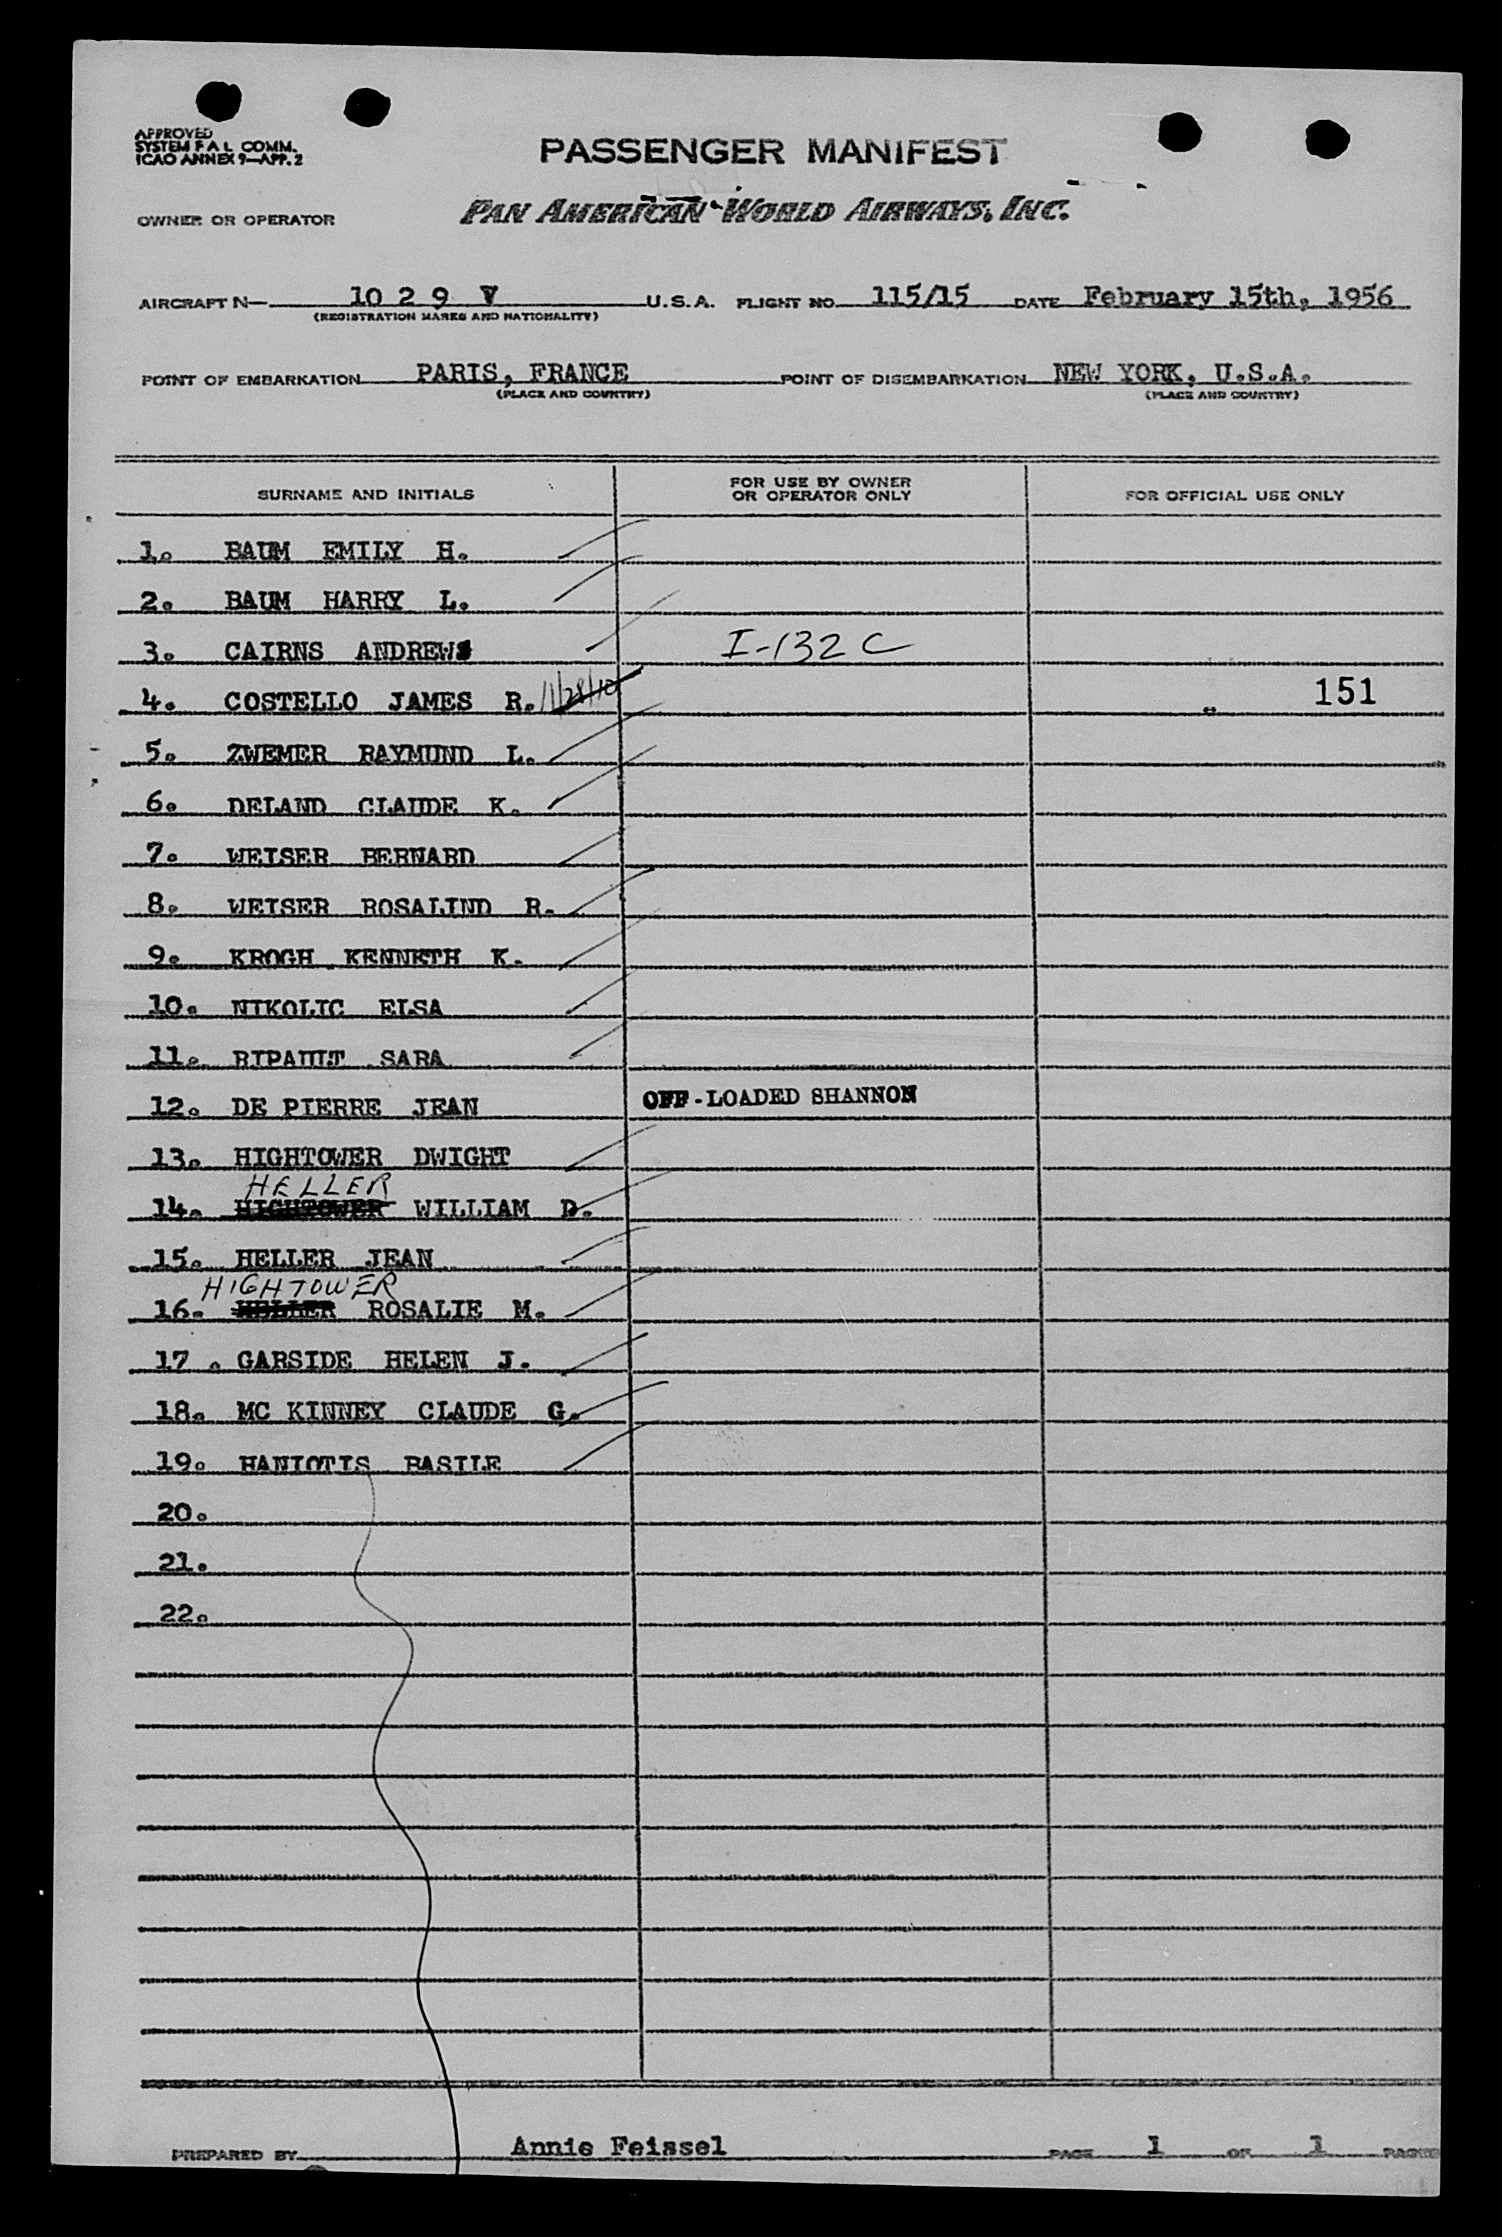 APPROVED
SYSTEM F A L COMM.
ICAO ANNEX 9—APP. 2
PASSENGER MANIFEST
OWNER OR OPERATOR
PAN AMERICAN WORLD AIRWAYS, INC.
AIRCRAFT N— 10 2 9 V U.S.A. FLIGHT NO. 115/15 DATE February 15th, 1956
(REGISTRATION MARKS AND NATIONALITY)
POINT OF EMBARKATION PARIS, FRANCE POINT OF DISEMBARKATION NEW YORK, U.S.A.
(PLACE AND COUNTRY) (PLACE AND COUNTRY)
SURNAME AND INITIALS FOR USE BY OWNER OR OPERATOR ONLY FOR OFFICIAL USE ONLY
1. BAUM EMILY H.
2. BAUM HARRY L.
3. CAIRNS ANDREW I-132 C
4. COSTELLO JAMES R. 11/28/10 151
5. ZWEMER RAYMUND L.
6. DELAND CLAUDE K.
7. WEISER BERNARD
8. WEISER ROSALIND R.
9. KROGH KENNETH K.
10. NIKOLIC ELSA
11. RIPAULT SARA
12. DE PIERRE JEAN OFF-LOADED SHANNON
13. HIGHTOWER DWIGHT
HELLER
14. HIGHTOWER WILLIAM D.
15. HELLER JEAN
HIGHTOWER
16. HELLER ROSALIE M.
17. GARSIDE HELEN J.
18. MC KINNEY CLAUDE G.
19. HANIOTIS BASILE
20.
21.
22.
PREPARED BY Annie Feissel PAGE 1 OF 1 PAGES